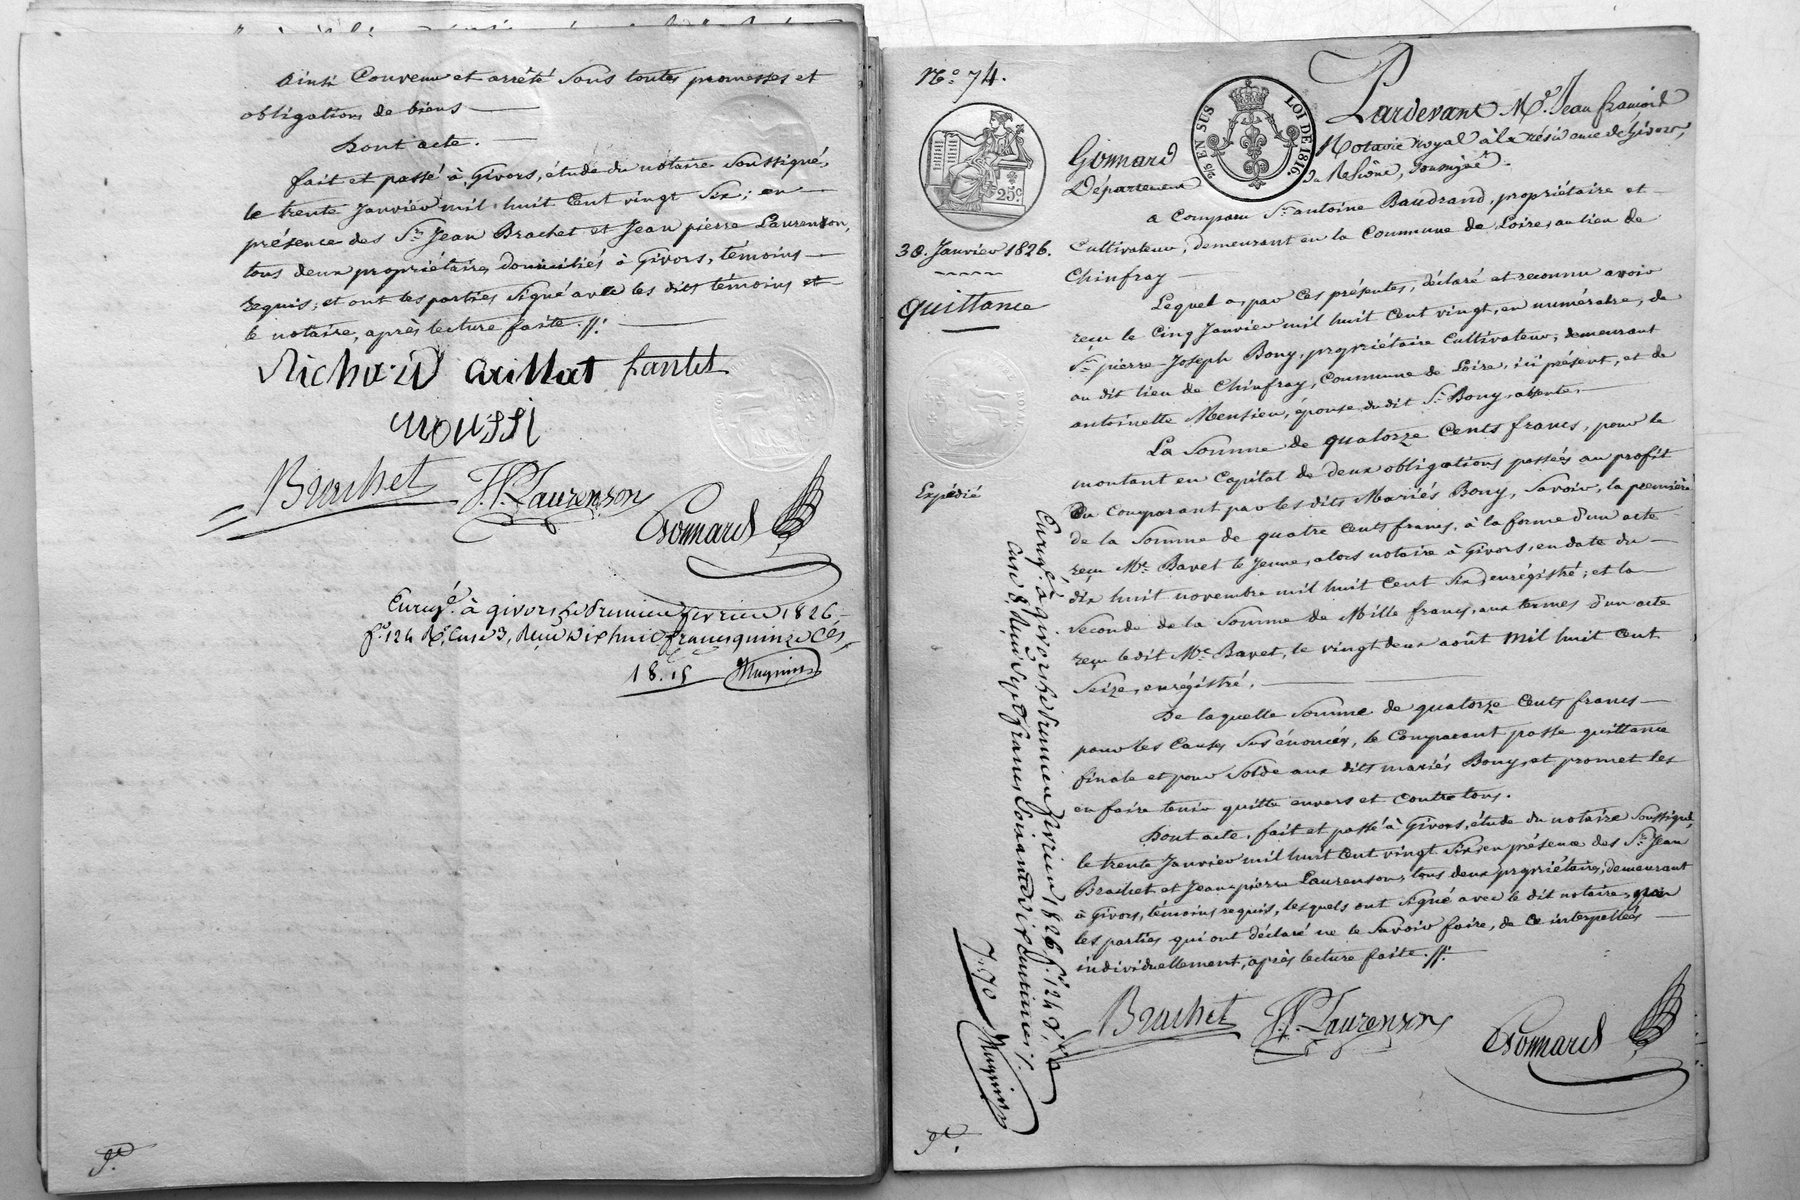 Ainsi Convenu et arrêté sous toutes promesses et
obligations de biens
Dont acte.
fait et passé à Givors, étude du notaire soussigné,
le trente Janvier mil huit Cent vingt Six; en
présence des Srs Jean Brachet et Jean pierre Laurenson,
tous deux propriétaires domiciliés à Givors, témoins
requis; et ont les parties signé avec les dits témoins et
le notaire, après lecture faite.//.
Richard Caillat
Brachet J.P. Laurenson
Gonnard
Enregé. à givors le premier fevrier 1826,
fo. 124 Ro. Case 3, Reçu Dix huit francs quinze Ces,
18.15
No. 74.
2/10 EN SUS LOI DE 1816.
25c.
30. Janvier 1826.
quittance
Expédié
Enregé. à givors le premier fevrier 1826, fo. 124
Case 8, Reçu Sept francs Soixante dix Centimes
7.70
Pardevant Me. Jean françois
Gonnard Notaire royal à la résidence de Givors,
Département du Rhône, Soussigné.
a Comparu Sr. antoine Baudrand, propriétaire et
Cultivateur, demeurant en la Commune de Loire, au lieu de
Chinfray
Lequel a, par ces présentes, déclaré et reconnu avoir
reçu le Cinq Janvier mil huit Cent vingt, en numéraire, de
Sr. pierre Joseph Bony, propriétaire Cultivateur, demeurant
au dit lieu de Chinfray, Commune de Loire, ici présent, et de
antoinette épouse du dit Sr. Bony, absente.
La Somme de quatorze Cents francs, pour le
montant en Capital de deux obligations passées au profit
du Comparant par les dits Mariés Bony, Savoir, la première
de la Somme de quatre Cents francs, à la forme d'un acte
reçu Me. Bavet le Jeune, alors notaire à Givors, en date du
dix huit novembre mil huit Cent six, enrégistré; et la
seconde de la Somme de Mille francs, aux termes d'un acte
reçu le dit Me. Bavet, le vingt deux août Mil huit Cent
Seize, enrégistré.
De laquelle Somme de quatorze Cents francs
pour les Causes sus énoncées, le Comparant passe quittance
finale et pour Solde aux dits mariés Bony, et promet les
en faire tenir quitte envers et Contre tous.
Dont acte, fait et passé à Givors, étude du notaire soussigné,
le trente Janvier mil huit Cent vingt Six en présence des Srs Jean
Brachet et Jean pierre Laurenson, tous deux propriétaires, demeurant
à Givors, témoins requis, lesquels ont signé avec le dit notaire, non
les parties qui ont déclaré ne le savoir faire, de Ce interpellées
individuellement, après lecture faite.//.
Brachet J.P. Laurenson Gonnard